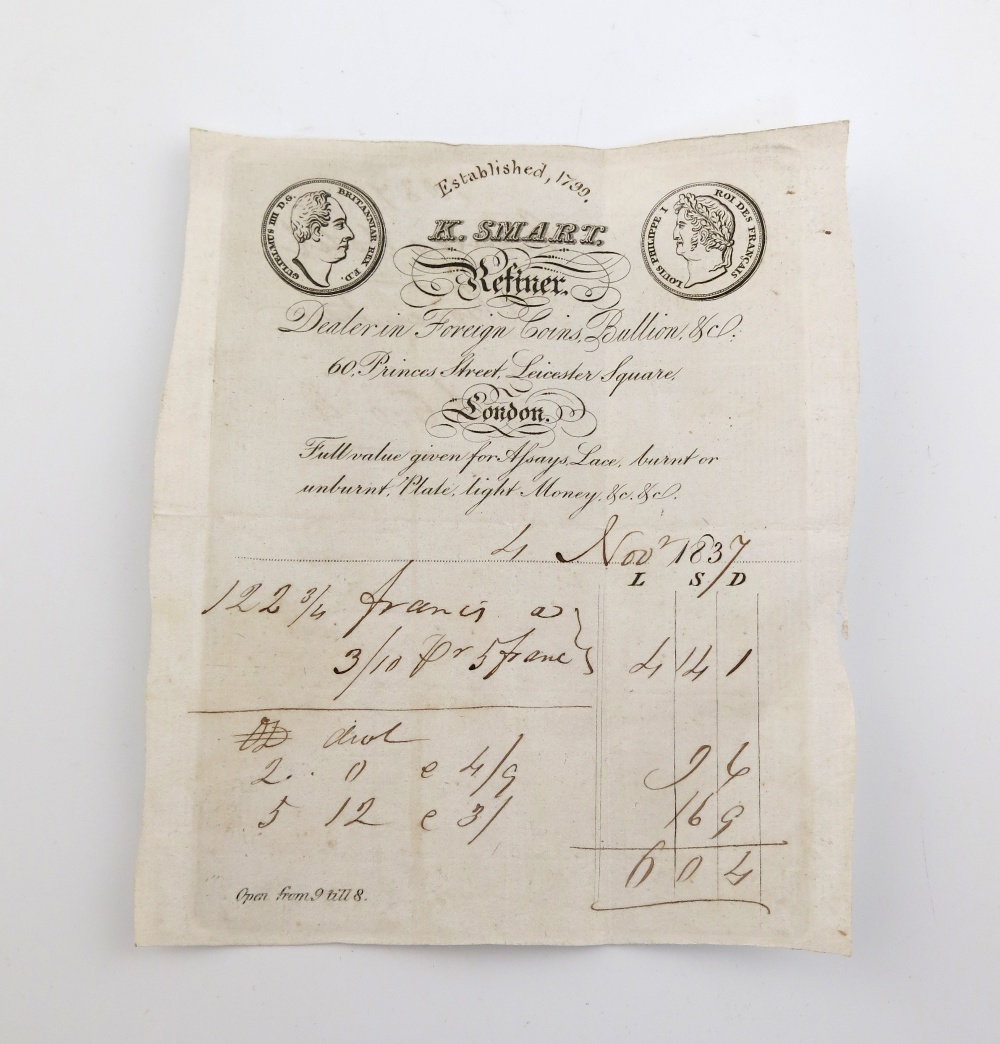 Established, 1799.
GULIELMUS IIII D.G. BRITANNIAR REX F.D.
K. SMART.
LOUIS PHILIPPE I ROI DES FRANÇAIS
Refiner.
Dealer in Foreign Coins, Bullion, &c.
60, Princes Street, Leicester Square,
London.
Full value given for Aſsays, Lace, burnt or
unburnt, Plate, light Money, &c. &c.
4 Novr 1837
L S D
122 3/4 francs a
3/10 Pr 5 franc 4 14 1
dwt
2 . 0 @ 4/9 9 6
5 12 @ 3/ 16 9
6 0 4
Open from 9 till 8.